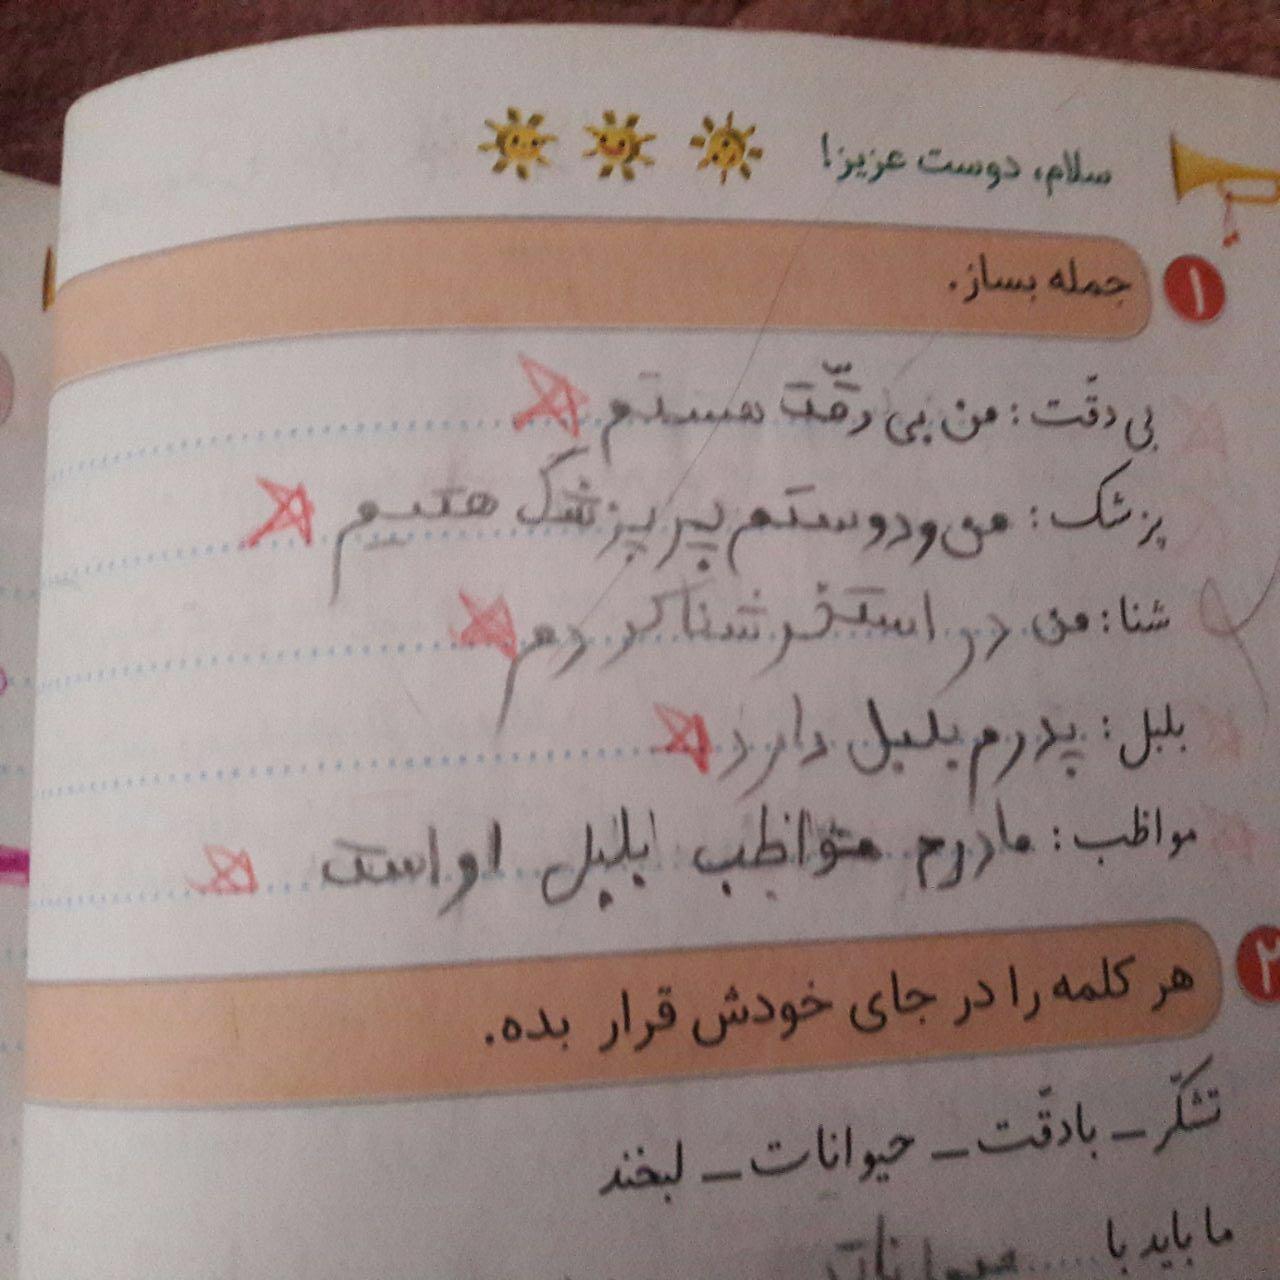 سلام، دوست عزیز!
۱ جمله بساز.
بی دقّت : من بی دقّت هستم
پزشک : من و دوستم پزشک هستیم
شنا : من در استخر شنا کردم
بلبل : پدرم بلبل دارد
مواظب : مادرم مواظب بلبل او است
۲ هر کلمه را در جای خودش قرار بده.
تشکّر ـ بادقّت ـ حیوانات ـ لبخند
ما باید با ..... حیوانات